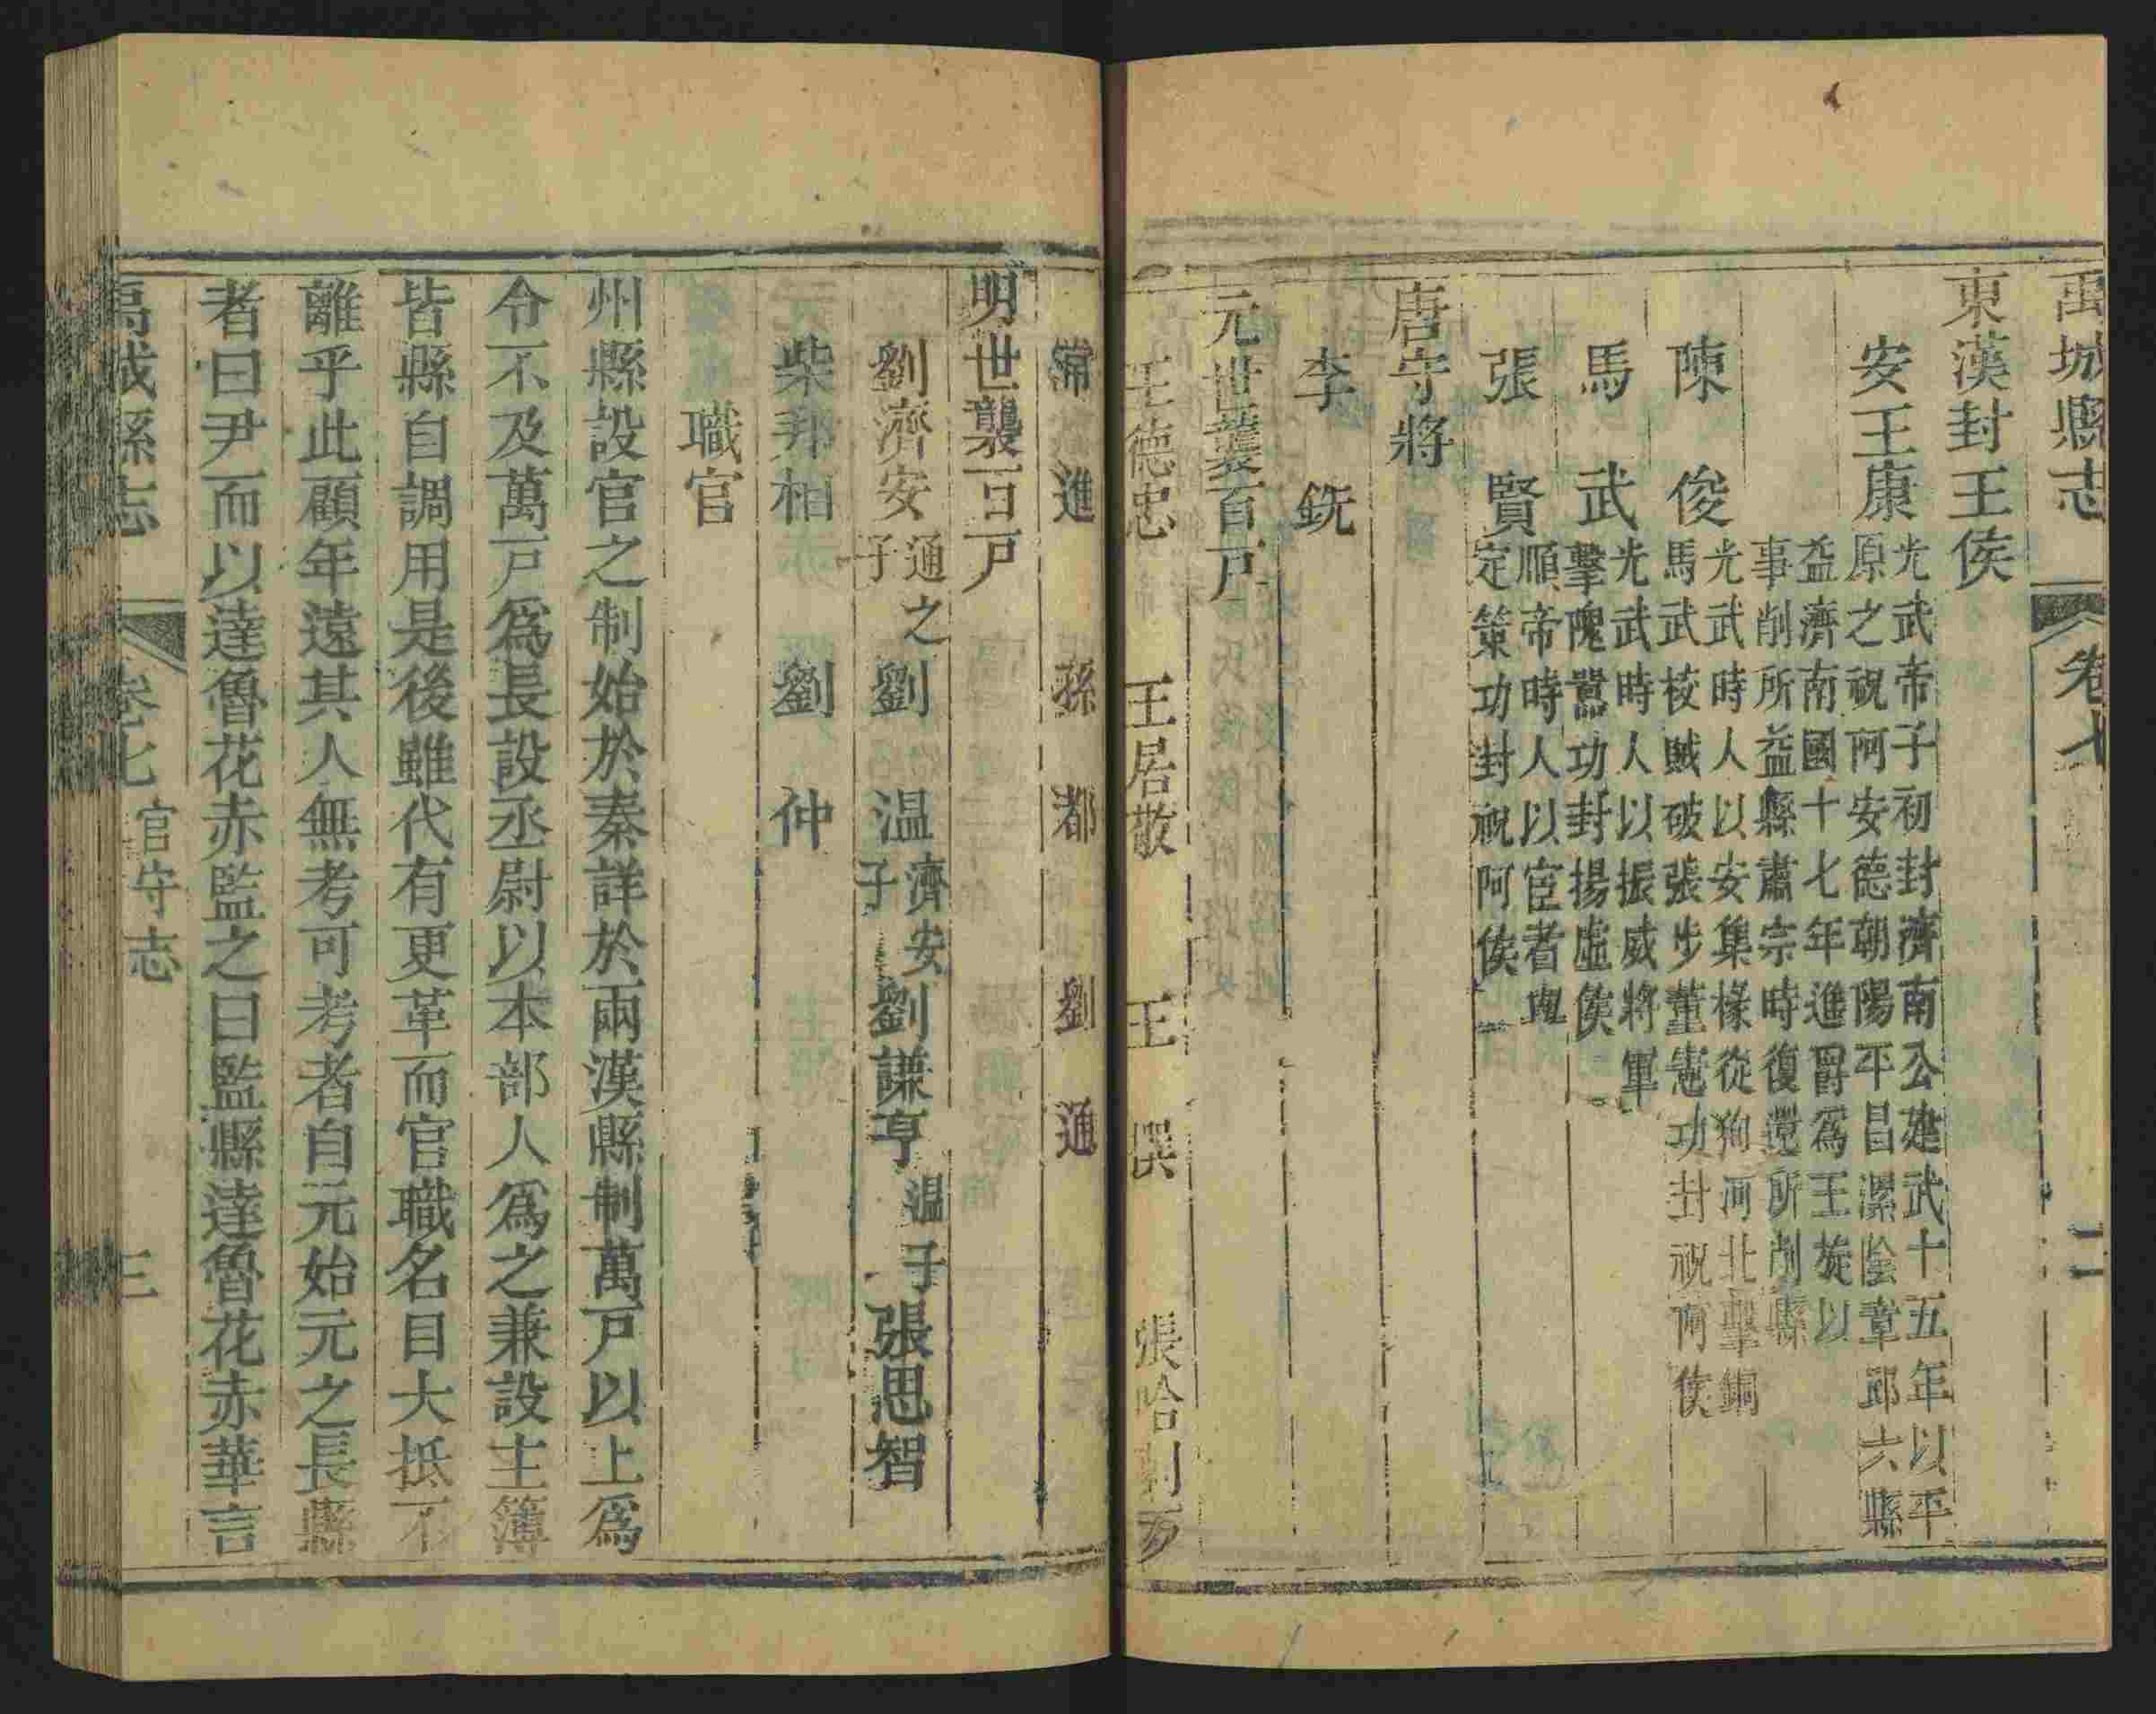 禹城縣志 卷七 二
東漢封王侯
安王康 光武帝子初封濟南公建武十五年以平
原之祝阿安德朝陽平昌漯隂章邱六縣
益濟南國十七年進爵爲王旋以
事削所益縣肅宗時復還所削縣
陳 俊 光武時人以安集掾從狥河北擊銅
馬武校賊破張步董憲功封祝阿侯
馬 武 光武時人以振威將軍
擊隗囂功封揚虛侯
張 賢 順帝時人以宦者與
定策功封祝阿侯
唐守將
李 銑
元世襲百戸
王德忠 王居敬 王 撰 張哈剌
常 進 孫 都 劉 通
明世襲百戸
劉濟安 通之子 劉 温 濟安子 劉謙亨 温子 張思智
柴邦相 劉 仲
職官
州縣設官之制始於秦詳於兩漢縣制萬戸以上爲
令不及萬戸爲長設丞尉以本部人爲之兼設主簿
皆縣自調用是後雖代有更革而官職名目大抵不
離乎此顧年遠其人無考可考者自元始元之長縣
者曰尹而以達魯花赤監之曰監縣達魯花赤華言
禹城縣志 卷七 官守志 三